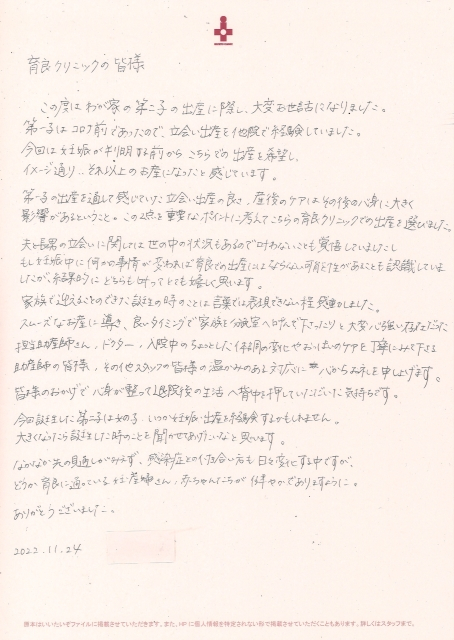 育良クリニックの皆様
この度はわが家の第二子の出産に際し、大変お世話になりました。
第一子はコロナ前であったので、立会い出産を他院で経験していました。
今回は妊娠が判明する前からこちらでの出産を希望し、
イメージ通り…それ以上のお産になったと感じています。
第一子の出産を通して感じていた立会い出産の良さ、産後のケアはその後の心身に大きく
影響があるということ。この2点を重要なポイントに考えてこちらの育良クリニックでの出産を選びました。
夫と長男の立会いに関しては世の中の状況もあるので叶わないことも覚悟していましたし
もし妊娠中に何かの事情が変われば育良での出産にはならない可能性があることも認識していま
したが、結果的にどちらも叶ってとても嬉しく思います。
家族で迎えることのできた誕生の時のことは言葉では表現できない程感動しました。
スムーズなお産に導き、良いタイミングで家族を分娩室へ呼んで下さったりと大変心強い存在だった
担当助産師さん、ドクター、入院中のちょっとした体調の変化やおっぱいのケアを丁寧にみて下さる
助産師の皆様、その他スタッフの皆様の温かみのある対応に心からお礼を申し上げます。
皆様のおかげで心身が整って退院後の生活へ背中を押していただいた気持ちです。
今回誕生した第二子は女の子。いつか妊娠・出産を経験するかもしれません。
大きくなったら誕生した時のことを聞かせてあげたいなと思います。
なかなか先の見通しがみえず、感染症との付き合い方も日々変化する中ですが、
どうか育良に通っている妊産婦さん、赤ちゃんたちが健やかでありますように。
ありがとうございました。
2022.11.24
原本はいいたいぞファイルに掲載させていただきます。また、HPに個人情報を特定されない形で掲載させていただくこともあります。詳しくはスタッフまで。